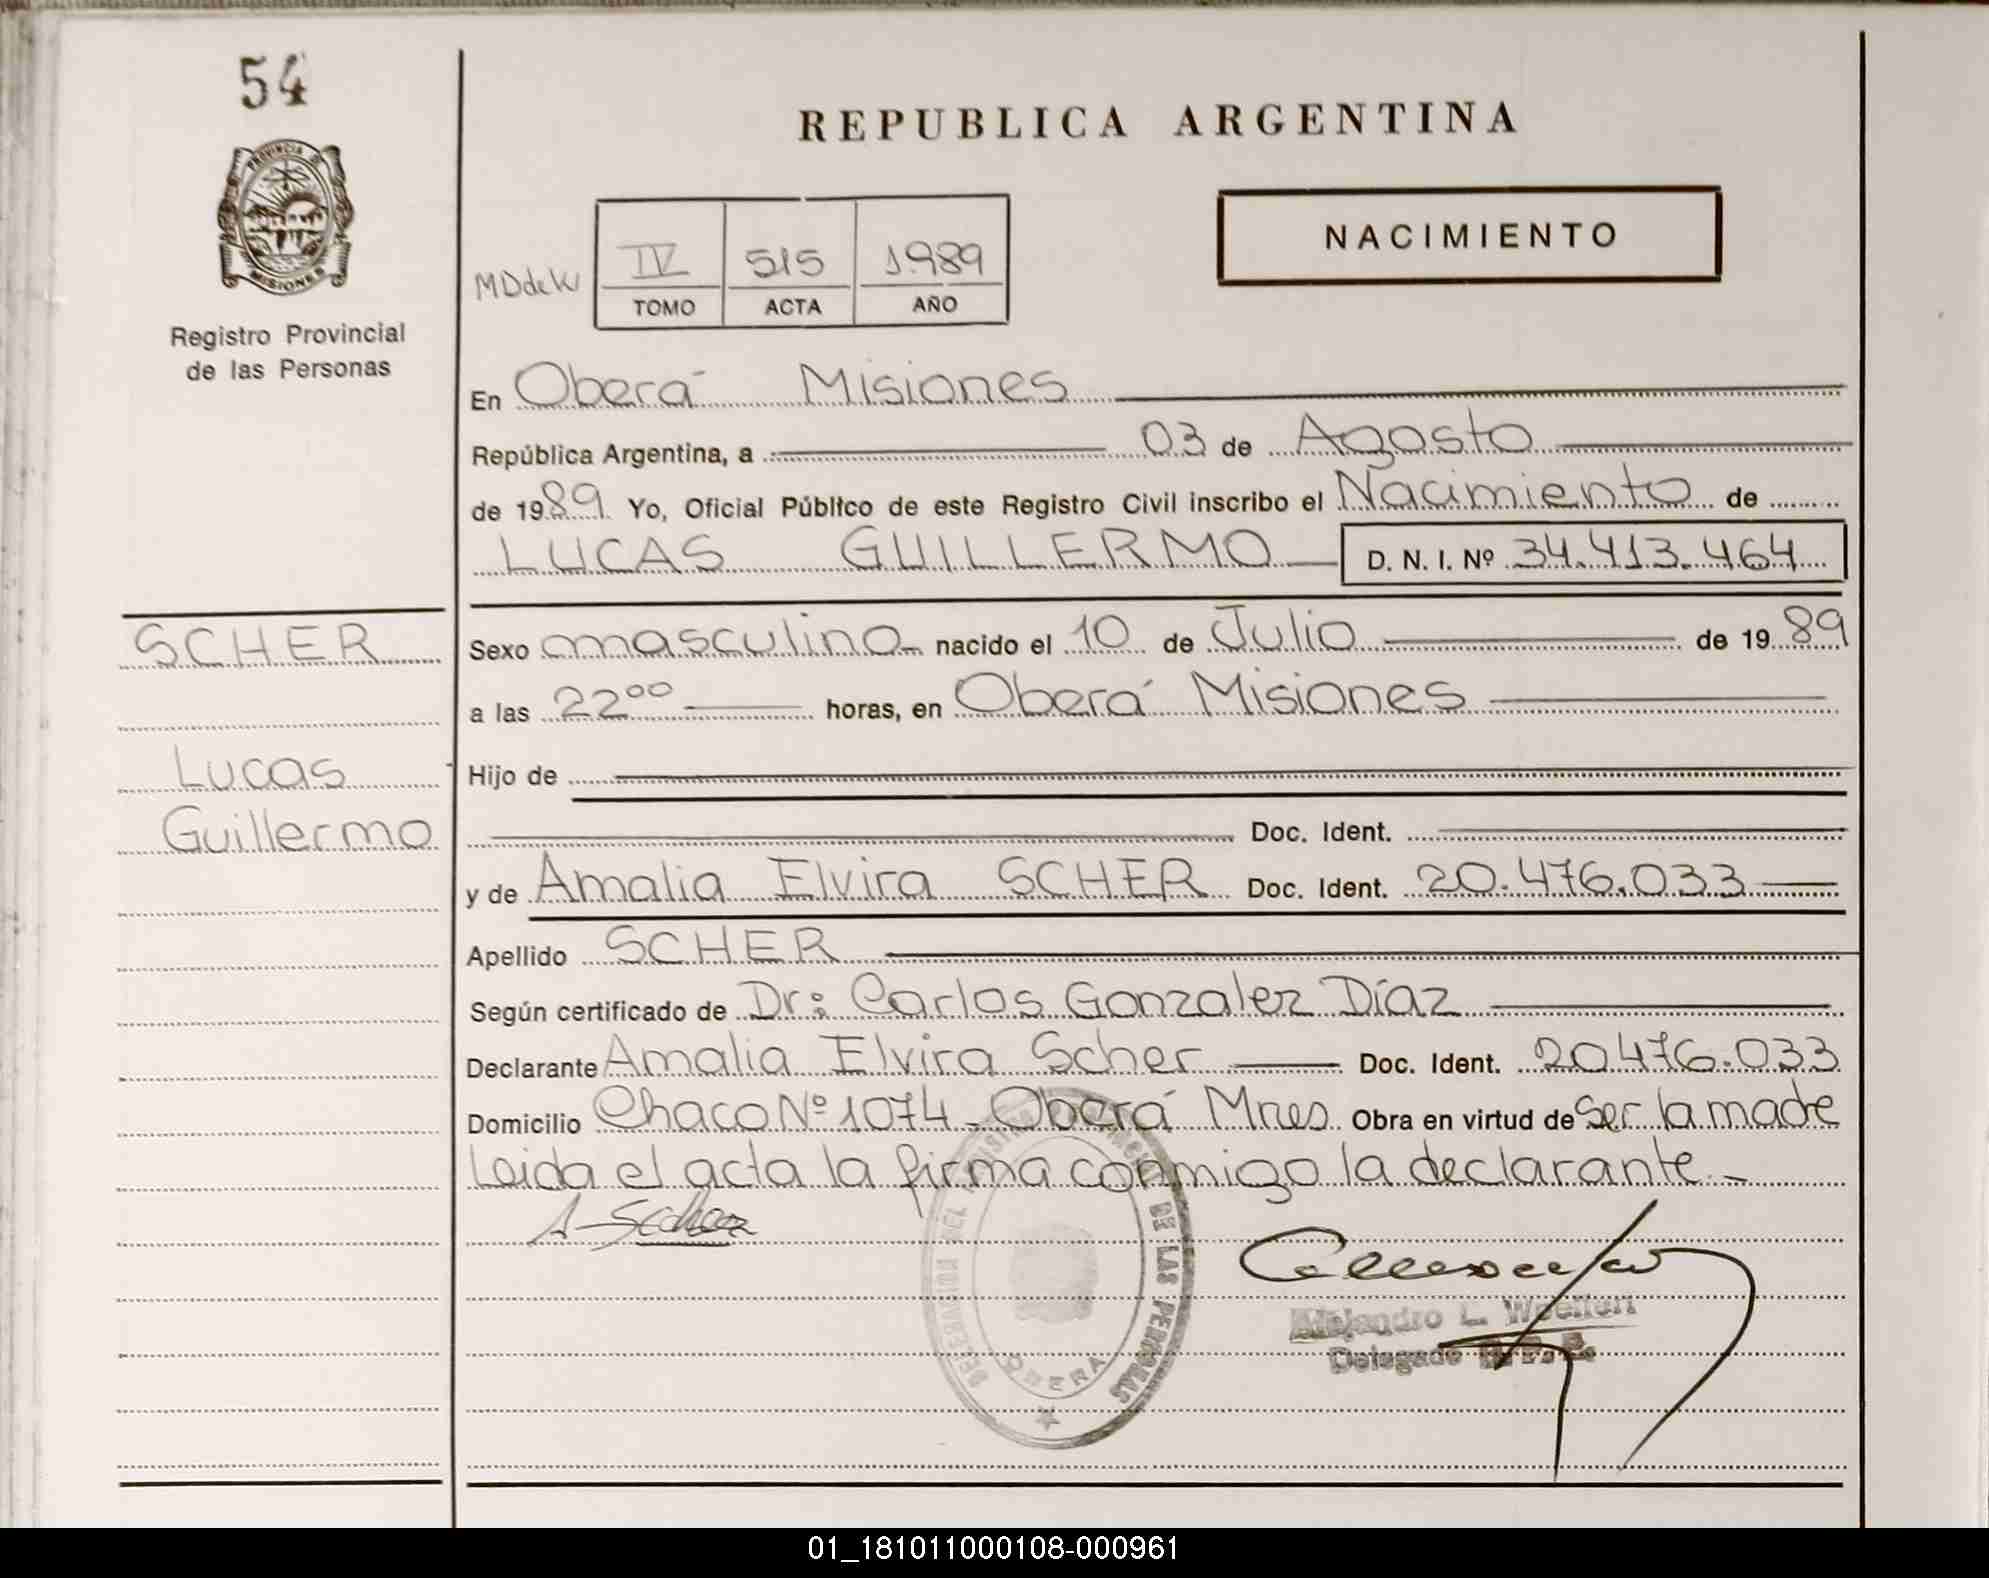 54
PROVINCIA DE
MISIONES
Registro Provincial
de las Personas
REPUBLICA ARGENTINA
NACIMIENTO
MDdeW
IV 515 1989
TOMO ACTA AÑO
En Oberá Misiones
República Argentina, a 03 de Agosto
de 1989 Yo, Oficial Público de este Registro Civil inscribo el Nacimiento de
LUCAS GUILLERMO D. N. I. Nº 34.413.464
SCHER
Lucas
Guillermo
Sexo masculino nacido el 10 de Julio de 1989
a las 22⁰⁰ horas, en Oberá Misiones
Hijo de
Doc. Ident.
y de Amalia Elvira SCHER Doc. Ident. 20.476.033
Apellido SCHER
Según certificado de Dr: Carlos Gonzalez Díaz
Declarante Amalia Elvira Scher Doc. Ident. 20.476.033
Domicilio Chaco Nº 1074 - Oberá Mnes. Obra en virtud de Ser la madre
Leida el acta la firma conmigo la declarante.-
A-Scher
DELEGACION DEL DE LAS PERSONAS
OBERA
Alejandro L.
Delegado
01_181011000108-000961